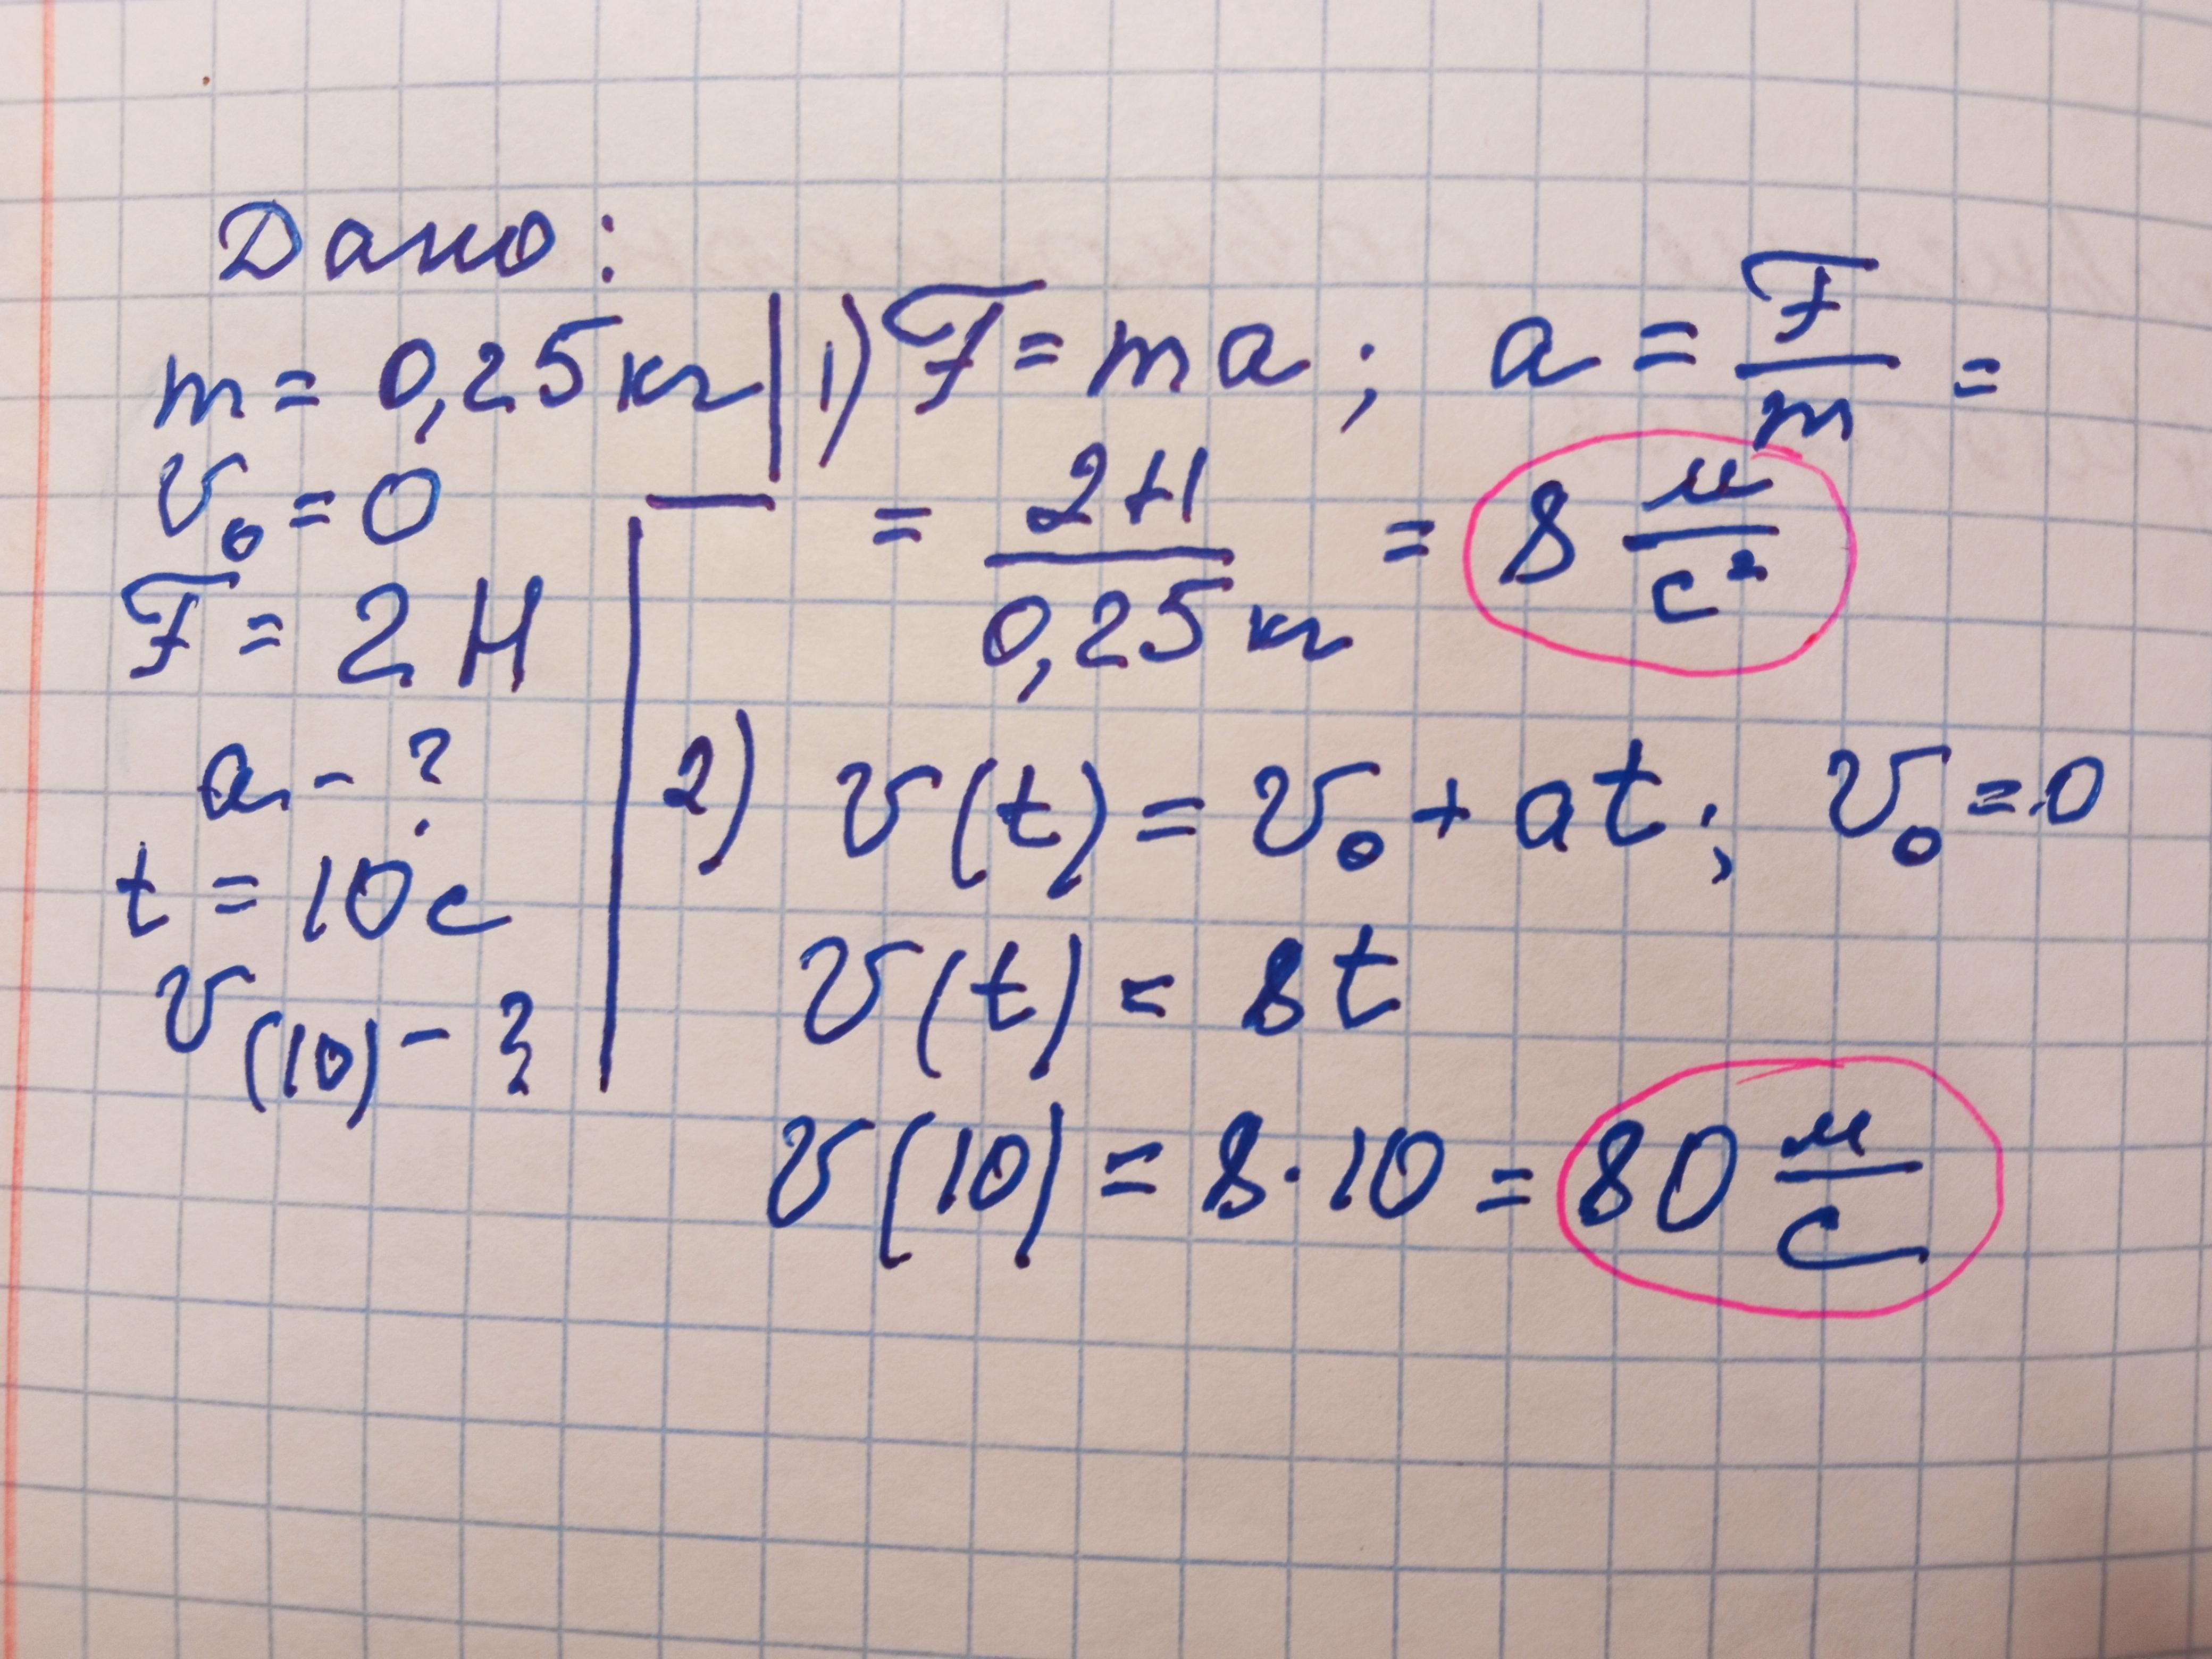 Дано:
m = 0,25 кг
v₀ = 0
F = 2 Н
a - ?
t = 10 с
v(10) - ?
1) F = ma; a = F/m =
= 2Н/0,25 кг = 8 м/с²
2) v(t) = v₀ + at; v₀ = 0
v(t) = 8t
v(10) = 8·10 = 80 м/с